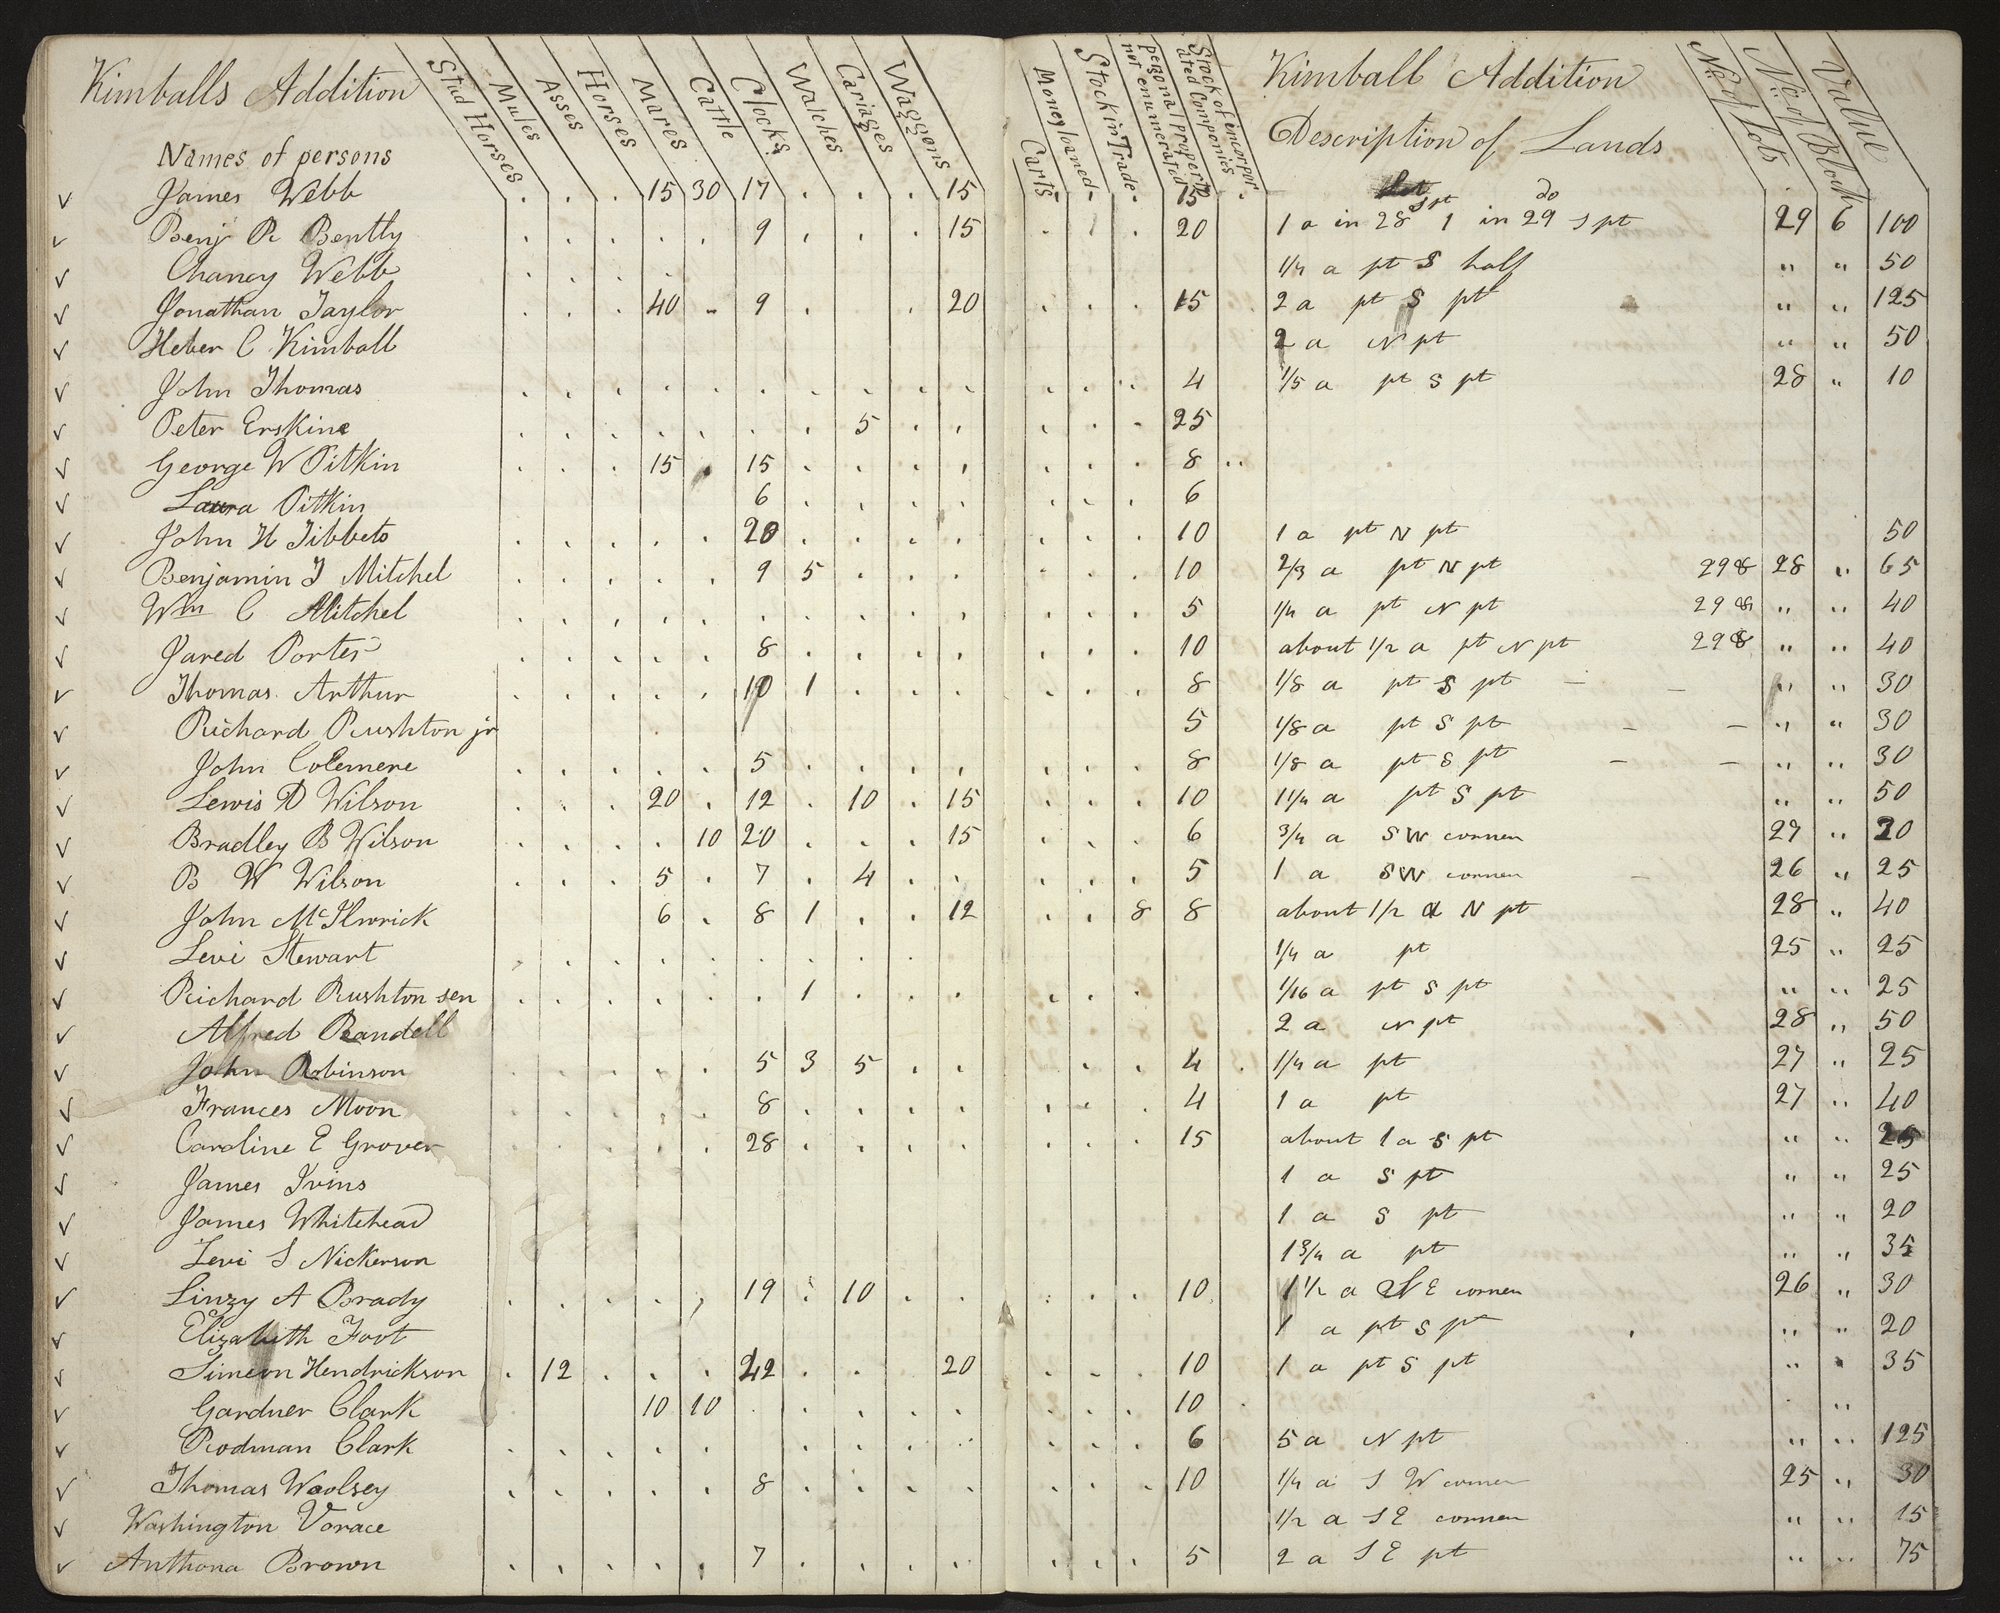 Kimballs Addition
Stud Horses Mules Asses Horses Mares Cattle Clocks Watches Cariages Waggons Carts Money loaned Stock in Trade personal property not enumerated Stock of incorporated Companies
Kimball Addition
Description of Lands
No of Lots No of Block Value
Names of persons
James Webb 15 30 17 15 15 do
Benj R Bently 9 15 20 1 a in 28 S pt 1 in 29 S pt 29 6 100
Chancy Webb 1/4 a pt S half " " 50
Jonathan Taylor 40 9 20 15 2 a pt S pt " " 125
Heber C Kimball 2 a N pt " " 50
John Thomas 4 1/5 a pt S pt 28 " 10
Peter Erskine 5 25
George W Pitkin 15 15 8
Laura Pitkin 6 6
John H Tibbets 20 10 1 a pt N pt 50
Benjamin T Mitchel 9 5 10 2/3 a pt N pt 29 & 28 " 65
Wm C Mitchel 5 1/4 a pt N pt 29 & " " 40
Jared Porter 8 10 about 1/2 a pt N pt 29 & " " 40
Thomas Arthur 10 1 8 1/8 a pt S pt " " 30
Richard Rushton jr 5 1/8 a pt S pt " " 30
John Colemere 5 8 1/8 a pt S pt " " 30
Lewis D Wilson 20 12 10 15 10 1 1/4 a pt S pt " " 50
Bradley B Wilson 10 20 15 6 3/4 a SW corner 27 " 20
B W Wilson 5 7 4 5 1 a SW corner 26 " 25
John McIlwrick 6 8 1 12 8 8 about 1/2 a N pt 28 " 40
Levi Stewart 1/4 a pt 25 " 25
Richard Rushton sen 1 1/16 a pt S pt " " 25
Alfred Randell 2 a N pt 28 " 50
John Robinson 5 3 5 4 1/4 a pt 27 " 25
Frances Moon 8 4 1 a pt 27 " 40
Caroline E Grover 28 15 about 1 a S pt " " 25
James Ivins 1 a S pt " " 25
James Whitehead 1 a S pt " " 20
Levi S Nickerson 1 3/4 a pt " " 35
Linzy A Brady 19 10 10 1 1/2 a E corner 26 " 30
Elizabeth Foot 1 a pt S pt " " 20
Simeon Hendrickson 12 42 20 10 1 a pt S pt " " 35
Gardner Clark 10 10 10 "
Rodman Clark 6 5 a N pt " " 125
Thomas Woolsey 8 10 1/4 a S W corner 25 " 30
Washington Vorace 1/2 a S E corner " " 15
Anthona Brown 7 5 2 a S E pt " " 75